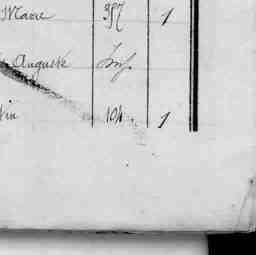 Marie 957 1
Auguste Inf.
tin 104. 1